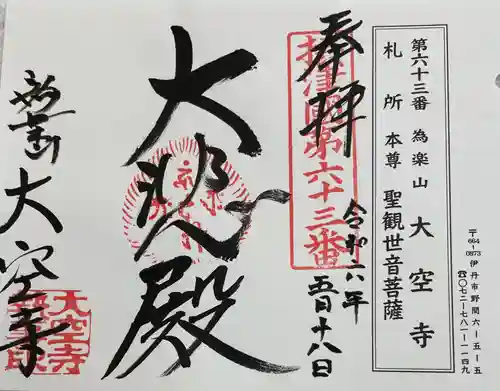 第六十三番 為楽山 大空寺
札所 本尊 聖観世音菩薩
〒664-0873 伊丹市野間六-五-五
☎〇七二-七八一-一一四九
奉拝
令和六年
五月十八日
摂津国第六十三番
大悲殿
大空寺
大空寺